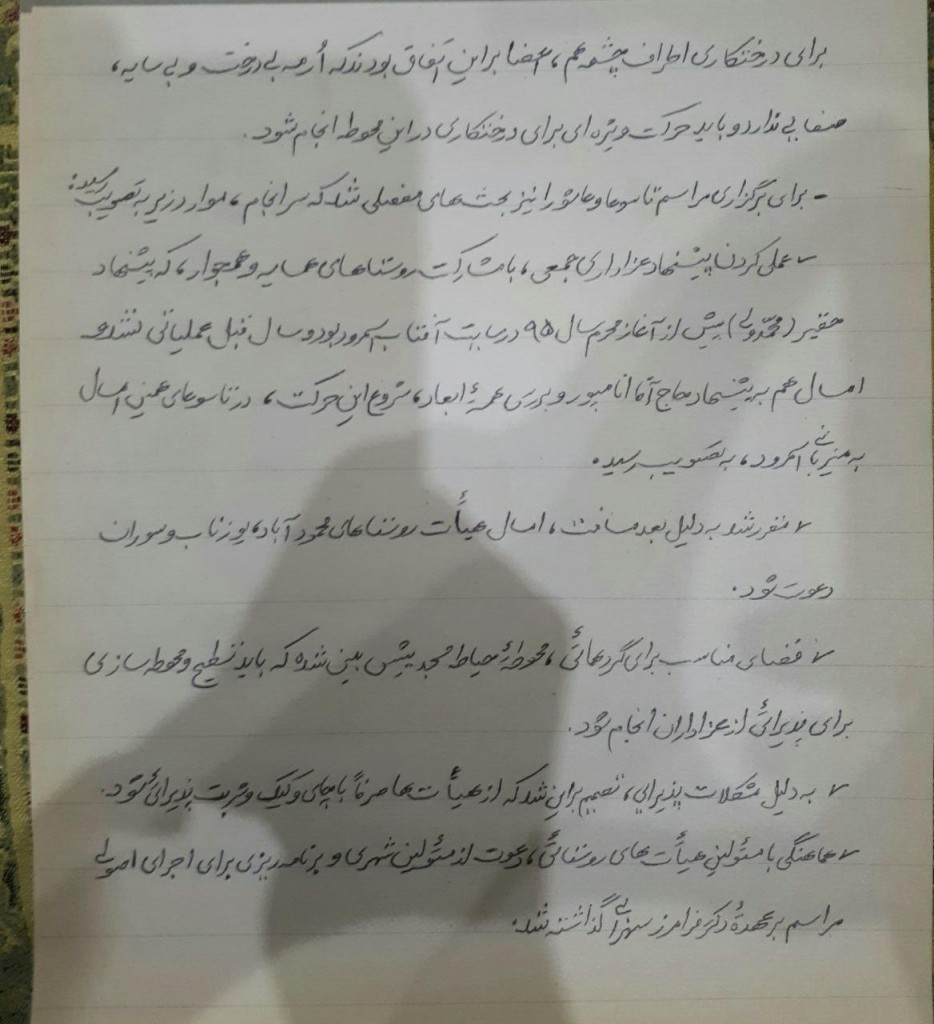 برای درختکاری اطراف چشمه هم، اعضا بر این اتفاق بودند که اُرمه بی درخت و بی سایه،
صفایی ندارد و باید حرکت ویژه ای برای درختکاری در این محوطه انجام شود.
- برای برگزاری مراسم تاسوعا و عاشورا نیز بحث های مفصلی شد که سرانجام، موارد زیر به تصویب رسید:
✓ عملی کردن پیشنهاد عزاداری جمعی، با مشارکت روستاهای همسایه و همجوار، که پیشنهاد
حقیر (محمدولی) پیش از آغاز محرم سال ۹۵ در سایت آفتاب اسمرود بود و سال قبل عملیاتی نشد و
امسال هم به پیشنهاد حاج آقا و بررسی همهٔ ابعاد، شروع این حرکت، در تاسوعای همین امسال
به میزبانی اسمرود، به تصویب رسید.
✓ مقرر شد به دلیل بعد مسافت، امسال هیأت روستاهای محمودآباد، یوزناب و سوران
دعوت شود.
✓ فضای مناسب برای گردهمائی، محوطهٔ حیاط مسجد پیش بینی شده که باید تسطیح و محوطه سازی
برای پذیرائی از عزاداران انجام شود.
✓ به دلیل مشکلات پذیرایی، تصمیم بر این شد که از هیأت ها صرفاً با چای و کیک و شربت پذیرائی شود.
✓ هماهنگی با مسئولین هیأت های روستائی، دعوت از مسئولین شهری و برنامه ریزی برای اجرای اصولی
مراسم بر عهدهٔ دکتر فرامرز سهرابی گذاشته شد.